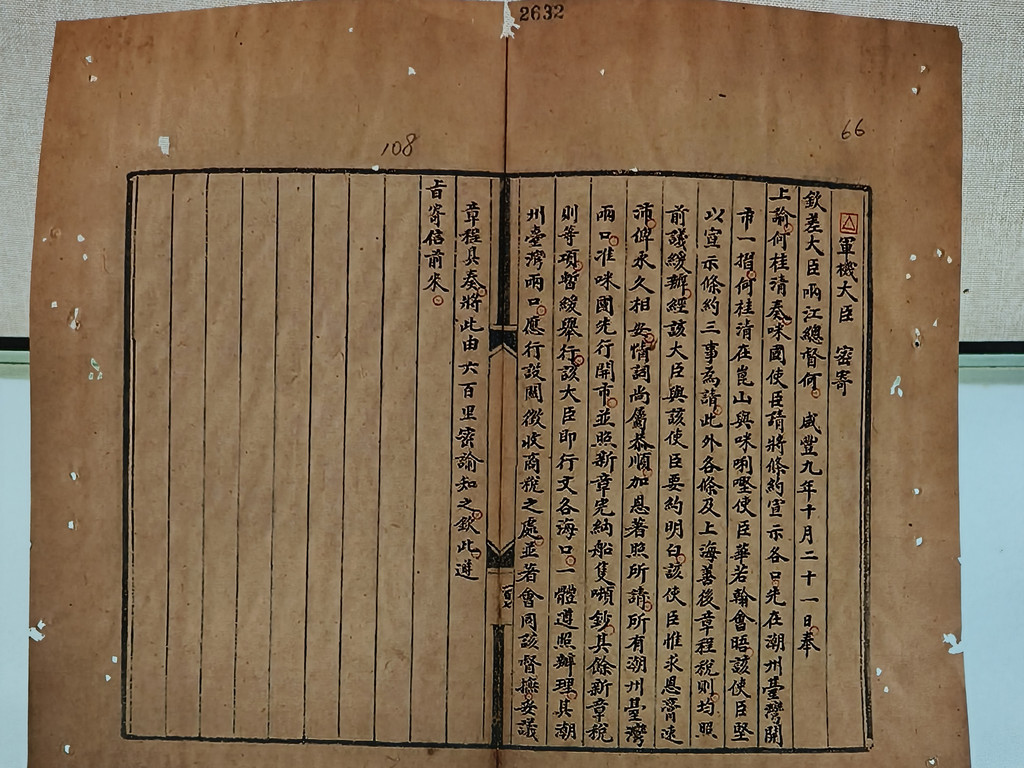 2632
66
108
軍機大臣 密寄
欽差大臣兩江總督何。咸豐九年十月二十一日奉
上諭。何桂清奏。咪國使臣請將條約宣示各口。先在潮州臺灣開
市一摺。何桂清在崑山與咪唎㗨使臣華若翰會晤。該使臣堅
以宣示條約三事為請。此外各條及上海善後章程稅則。均照
前議緩辦。經該大臣與該使臣要約明白。該使臣惟求恩膏速
沛。俾永久相安。情詞尚屬恭順。加恩著照所請。所有潮州臺灣
兩口。准咪國先行開市。並照新章完納船隻噸鈔。其餘新章稅
則等項。暫緩舉行。該大臣即行文各海口。一體遵照辦理。其潮
州臺灣兩口。應行設關徵收商稅之處。並著會同該督撫。妥議
百七
章程具奏。將此由六百里密諭知之。欽此。遵
旨寄信前來。